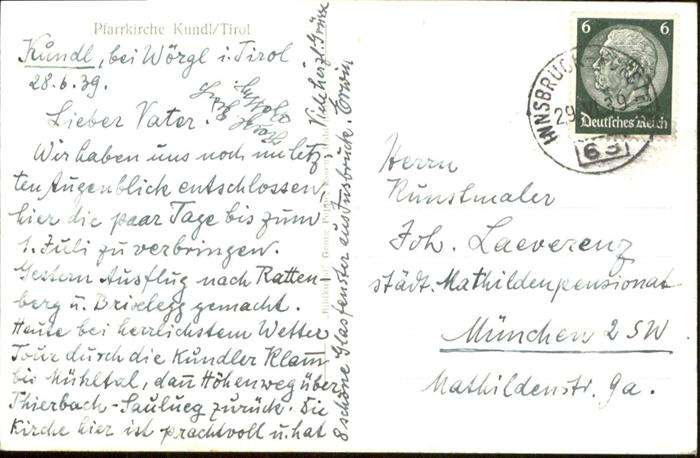 Pfarrkirche Kundl/Tirol
Kundl, bei Wörgl i. Tirol
28.6.39.
Lieber Vater.
Wir haben uns noch im letz-
ten Augenblick entschlossen,
hier die paar Tage bis zum
1. Juli zu verbringen.
Gestern Ausflug nach Ratten-
berg u. Brixlegg gemacht.
Heute bei herrlichstem Wetter
Tour durch die Kundler Klam
bis Mühltal, dan Höhenweg über
Thierbach-Saulueg zurück. Die
Kirche hier ist prachtvoll u. hat
8 schöne Glasfenster aus Insbruck.
Viele herzl. Grüsse
6 6
Deutsches Reich
INNSBRUCK
29
39
63
Herrn
Kunstmaler
Joh. Laeverenz
städt. Mathildenpensionat
München 2 SW
Mathildenstr. 9a.